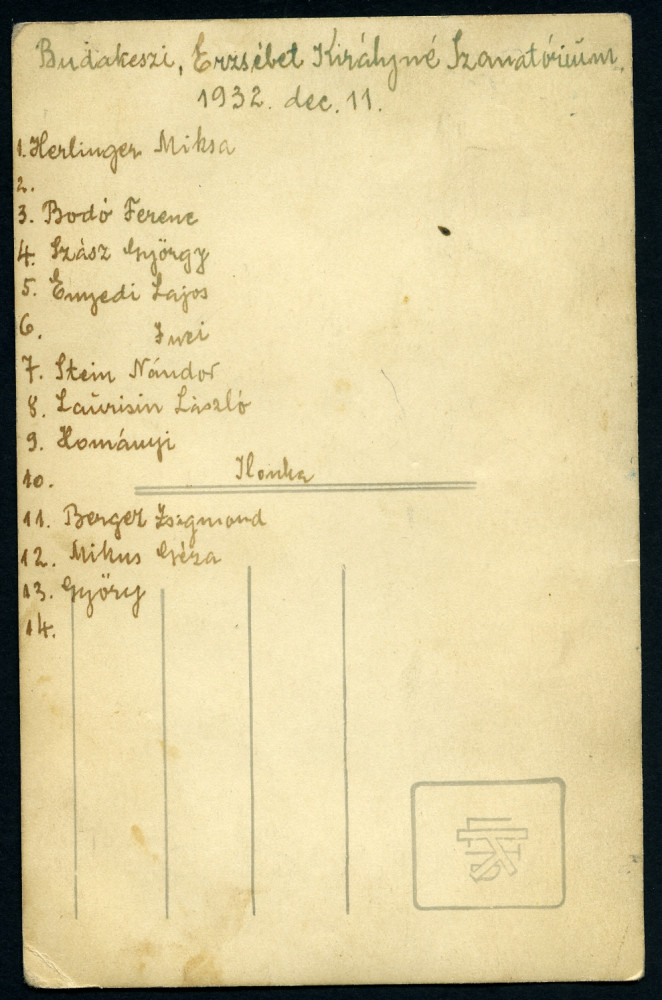 Budakeszi, Erzsébet Királyné Szanatórium.
1932. dec. 11.
1. Herlinger Miksa
2.
3. Bodó Ferenc
4. Szász György
5. Enyedi Lajos
6. Zwei
7. Stein Nándor
8. Laurisin László
9. Hományi
10. Ilonka
11. Berger Zsigmond
12. Mikus Géza
13. Györy
14.